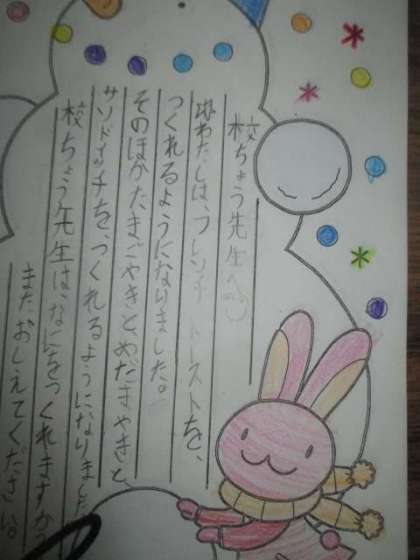 校ちょう先生へ
わたしは、フレンチトーストを、
つくれるようになりました。
そのほかたまごやきと、めだまやきと、
サンドイッチを、つくれるようになりました
校ちょう先生は、なにをつくれますか
またおしえてください。